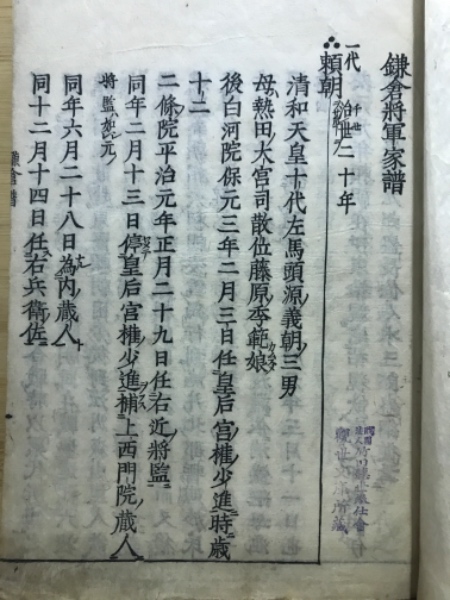 鎌倉將軍家譜
一代
頼朝 治世二十年
清和天皇十代左馬頭源義朝ノ三男
母ハ熱田大宮司散位藤原ノ季範娘
後白河院保元三年二月三日任ニ皇后宮權ノ少進ニ時歳
十二
二條ノ院平治元年正月二十九日任ニ右近ノ將監ニ
同年二月十三日停テ皇后宮權ノ少進ヲ補ス上西門院ノ藏人ニ
將監如シ元ノ
同年六月二十八日為ル内藏人ト
同十二月十四日任ス右兵衛佐ニ